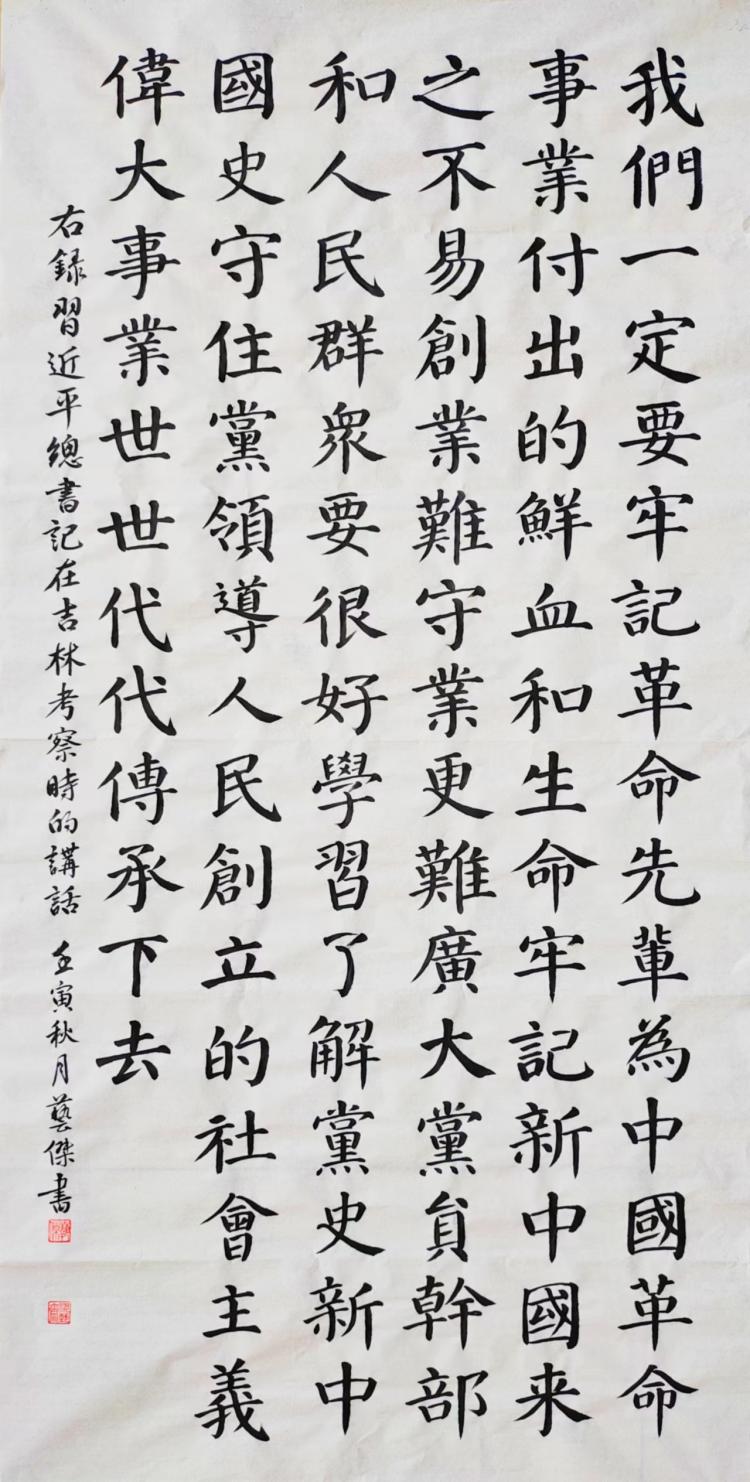 我們一定要牢記革命先輩為中國革命
事業付出的鮮血和生命牢記新中國来
之不易創業難守業更難廣大黨員幹部
和人民群衆要很好學習了解黨史新中
國史守住黨領導人民創立的社會主義
偉大事業世世代代傳承下去
右録習近平總書記在吉林考察時的講話 壬寅秋月藝傑書